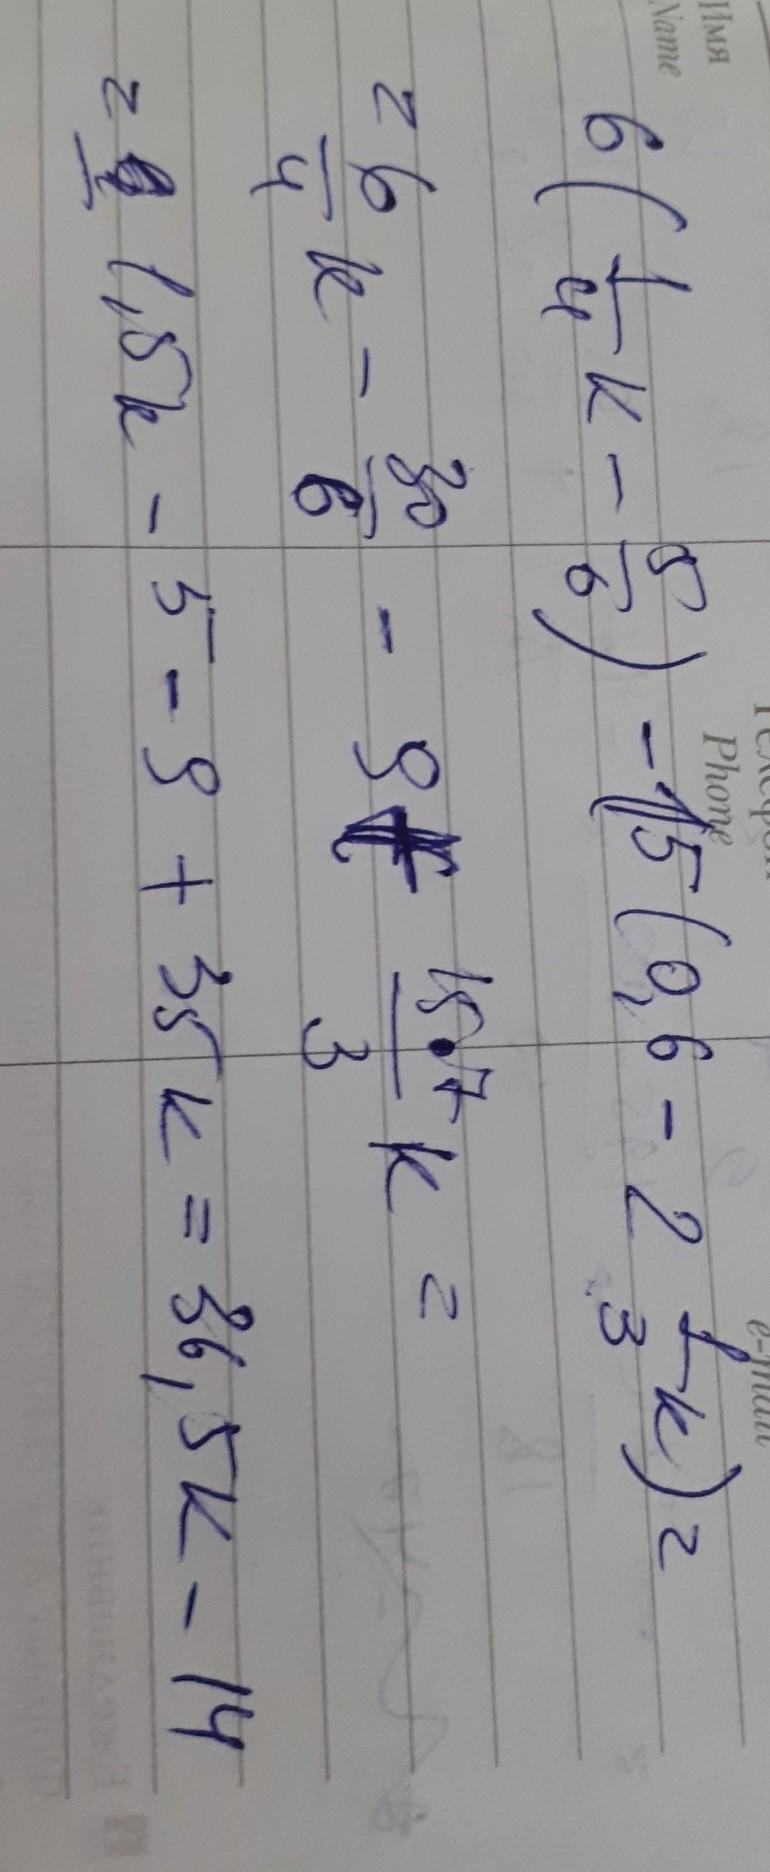 Имя
Name
Phone
e-mail
6(1/4 k - 5/6) - 15(0,6 - 2 1/3 k) =
= 6/4 k - 30/6 - 9 + 15·7/3 k =
= 1,5k - 5 - 9 + 35k = 36,5k - 14